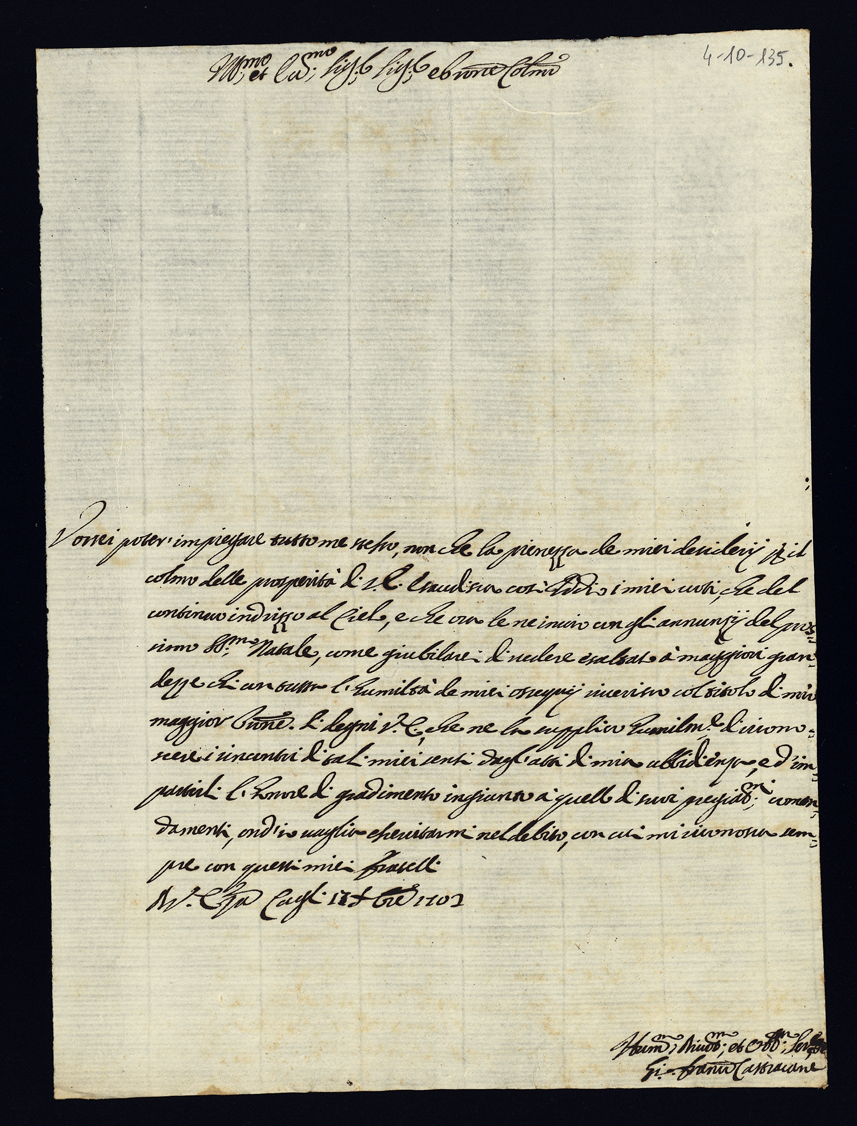 4-10-135.
Ill.mo et Ecc.mo Sig.r Sig.r e Prone Colmo
Vorrei poter' impiegare tutto me stesso, non che la pienezza de miei desiderij p il
colmo delle prosperità di V.E. esaudisca così Iddio i miei voti, che del
continuo indrizzo al Cielo, e che ora le ne invio con gli annunzij del pros-
simo SS.mo Natale, come giubilarei di vedere esaltato à maggiori gran-
dezze chi con tutta l'humiltà de miei ossequij riverisco col titolo di mio
maggior Prone. Si degni V.E., che ne la supplico humilm.te di ricono-
scere i incontri di tali miei senti dagl'atti di mia ubbidienza, e d'im-
partirli l'honore di gradimento ingiunto à quello di suoi pregiat.mi coman-
damenti, ond'io vaglia esercitarmi nel debito, con cui mi riconosco sem-
pre con questi miei fratelli
Di V. Ecza Cagli 17 Xbre 1702
Hum.mo Divot.mo et Obb.mo Ser.re
Gio Franco Castracane